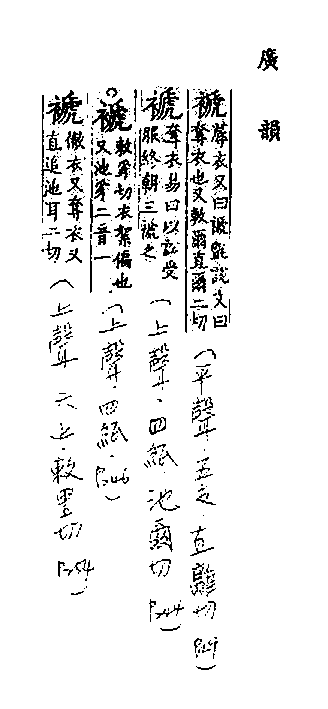 廣韻
褫 蓐衣又曰褫氈説文曰
奪衣也又敕爾直爾二切
(平聲.五支.直離切 P49)
褫 奪衣易曰以訟受
服終朝三褫之
(上聲.四紙.池爾切 P244)
褫 敕豸切衣絮偏也
又池豸二音一
(上聲.四紙. P246)
褫 徹衣又奪衣又
直追池耳二切
(上聲 六止.敕里切 P254)